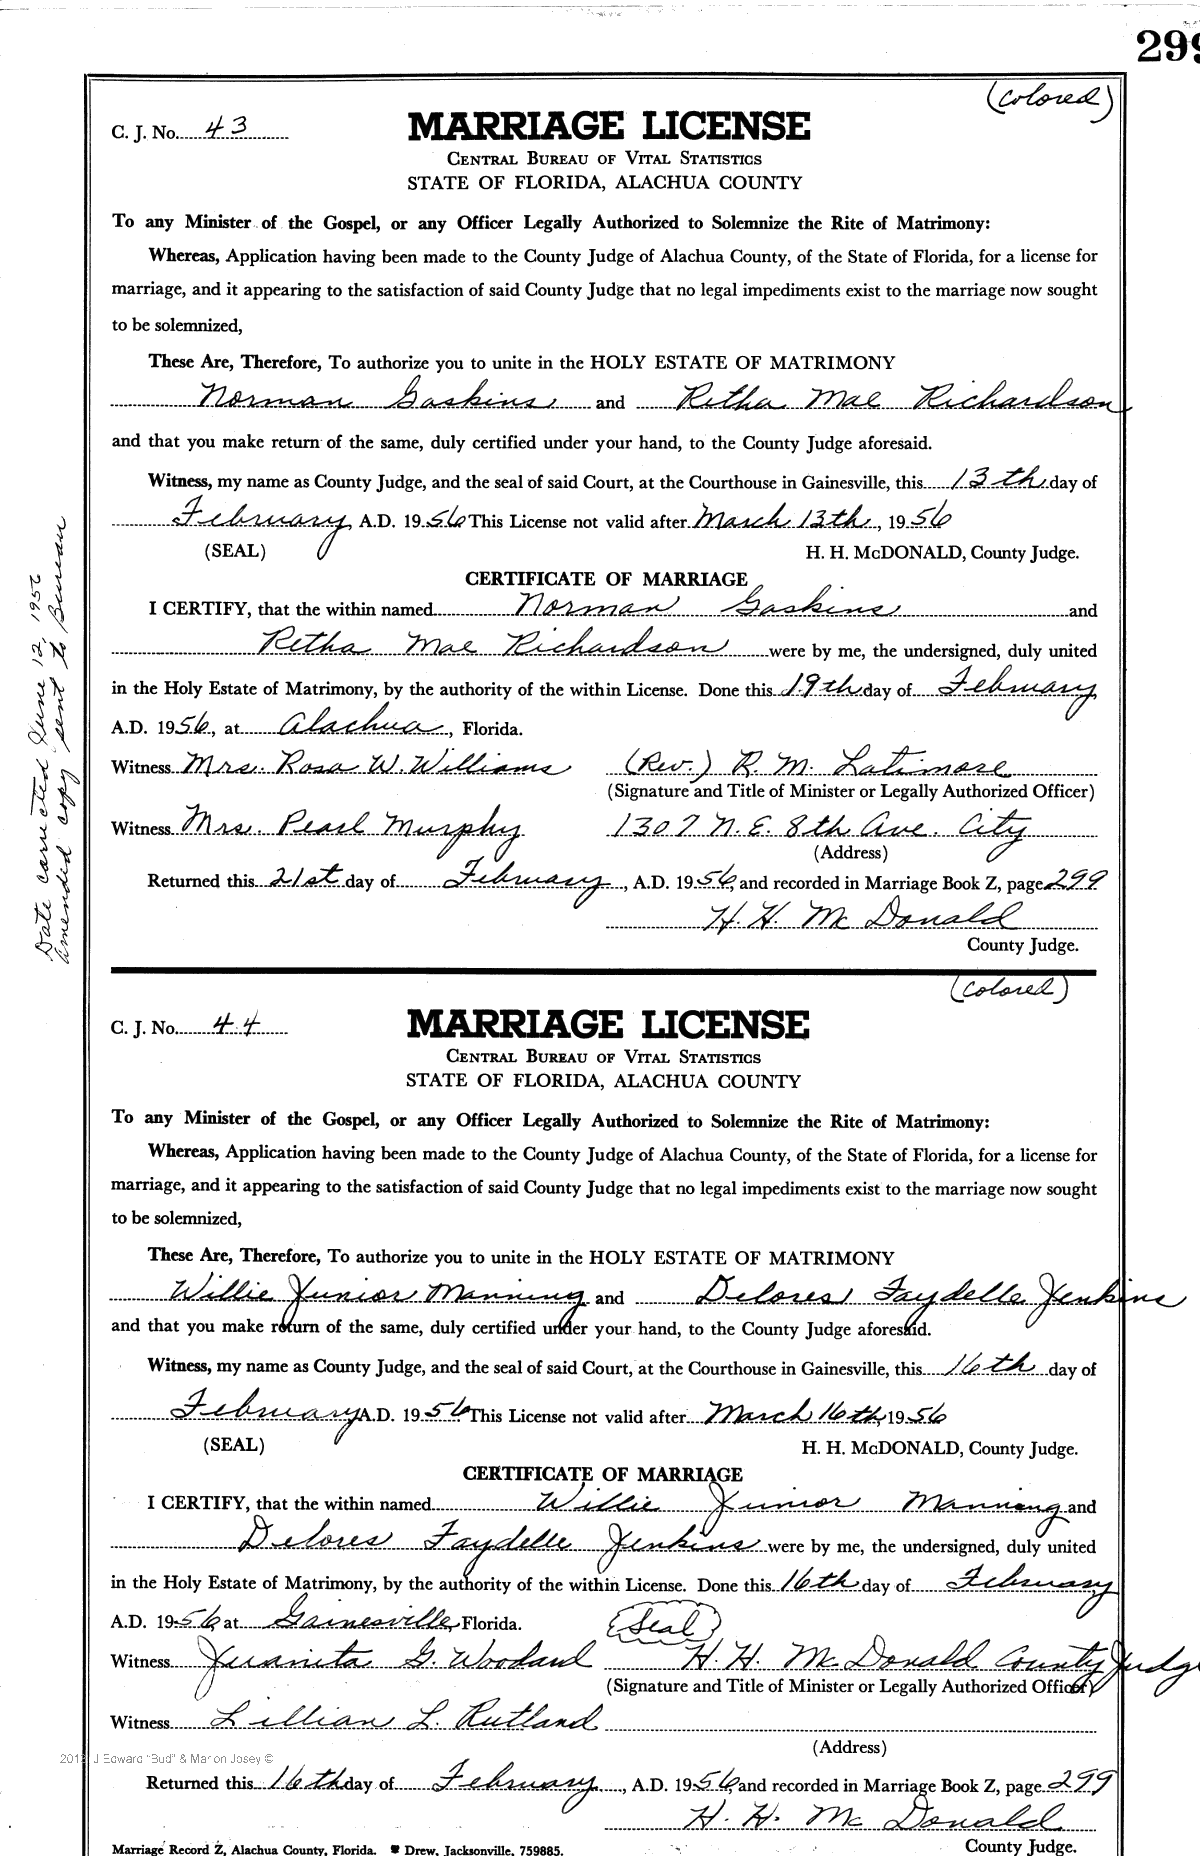 299
(colored)
C. J. No. 43
MARRIAGE LICENSE
CENTRAL BUREAU OF VITAL STATISTICS
STATE OF FLORIDA, ALACHUA COUNTY
To any Minister of the Gospel, or any Officer Legally Authorized to Solemnize the Rite of Matrimony:
Whereas, Application having been made to the County Judge of Alachua County, of the State of Florida, for a license for
marriage, and it appearing to the satisfaction of said County Judge that no legal impediments exist to the marriage now sought
to be solemnized,
These Are, Therefore, To authorize you to unite in the HOLY ESTATE OF MATRIMONY
Norman Gaskins and Retha Mae Richardson
and that you make return of the same, duly certified under your hand, to the County Judge aforesaid.
Witness, my name as County Judge, and the seal of said Court, at the Courthouse in Gainesville, this 13th day of
February, A.D. 1956 This License not valid after March 13th, 1956
(SEAL) H. H. McDONALD, County Judge.
CERTIFICATE OF MARRIAGE
I CERTIFY, that the within named Norman Gaskins and
Retha Mae Richardson were by me, the undersigned, duly united
in the Holy Estate of Matrimony, by the authority of the within License. Done this 19th day of February
A.D. 1956, at Alachua, Florida.
Witness Mrs. Rosa W. Williams (Rev.) R. M. Latimore
(Signature and Title of Minister or Legally Authorized Officer)
Witness Mrs. Pearl Murphy 1307 N. E. 8th Ave. City
(Address)
Returned this 21st day of February, A.D. 1956, and recorded in Marriage Book Z, page 299
H. H. McDonald
County Judge.
Date corrected June 12, 1956
Amended copy sent to Bureau
(colored)
C. J. No. 44
MARRIAGE LICENSE
CENTRAL BUREAU OF VITAL STATISTICS
STATE OF FLORIDA, ALACHUA COUNTY
To any Minister of the Gospel, or any Officer Legally Authorized to Solemnize the Rite of Matrimony:
Whereas, Application having been made to the County Judge of Alachua County, of the State of Florida, for a license for
marriage, and it appearing to the satisfaction of said County Judge that no legal impediments exist to the marriage now sought
to be solemnized,
These Are, Therefore, To authorize you to unite in the HOLY ESTATE OF MATRIMONY
Willie Junior Manning and Delores Faydelle Jenkins
and that you make return of the same, duly certified under your hand, to the County Judge aforesaid.
Witness, my name as County Judge, and the seal of said Court, at the Courthouse in Gainesville, this 16th day of
February A.D. 1956 This License not valid after March 16th, 1956
(SEAL) H. H. McDONALD, County Judge.
CERTIFICATE OF MARRIAGE
I CERTIFY, that the within named Willie Junior Manning and
Delores Faydelle Jenkins were by me, the undersigned, duly united
in the Holy Estate of Matrimony, by the authority of the within License. Done this 16th day of February
A.D. 1956, at Gainesville, Florida. (Seal)
Witness Juanita G. Woodard H. H. McDonald County Judge
(Signature and Title of Minister or Legally Authorized Officer)
Witness Lillian L. Rutland
(Address)
2013 J Edward "Bud" & Marion Josey ©
Returned this 16th day of February, A.D. 1956, and recorded in Marriage Book Z, page 299
H. H. McDonald
County Judge.
Marriage Record Z, Alachua County, Florida. Drew, Jacksonville, 759885.